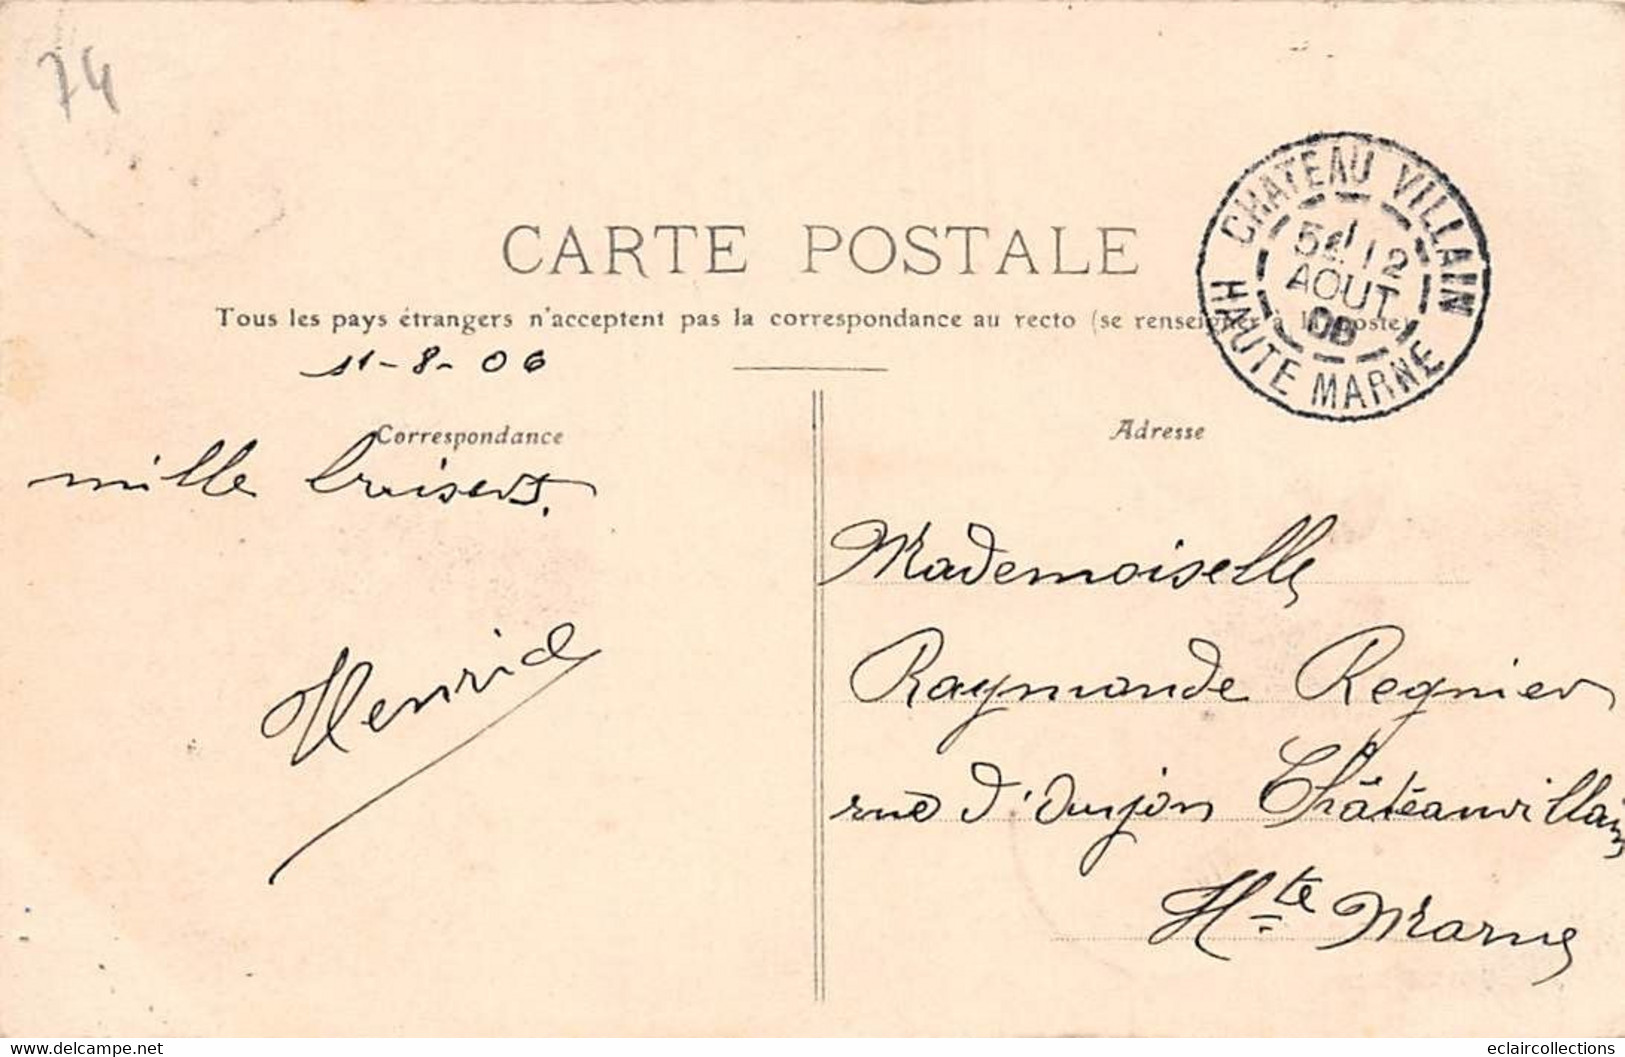 74
CHATEAU VILLAIN
5E 12
AOUT
06
HAUTE MARNE
CARTE POSTALE
Tous les pays étrangers n'acceptent pas la correspondance au recto (se renseigner à la poste)
11-8-06
Correspondance
Adresse
mille baisers.
Henri
Mademoiselle
Raymonde Regnier
rue d'Aujon Châteauvillain
Hte Marne
delcampe.net
eclaircollections